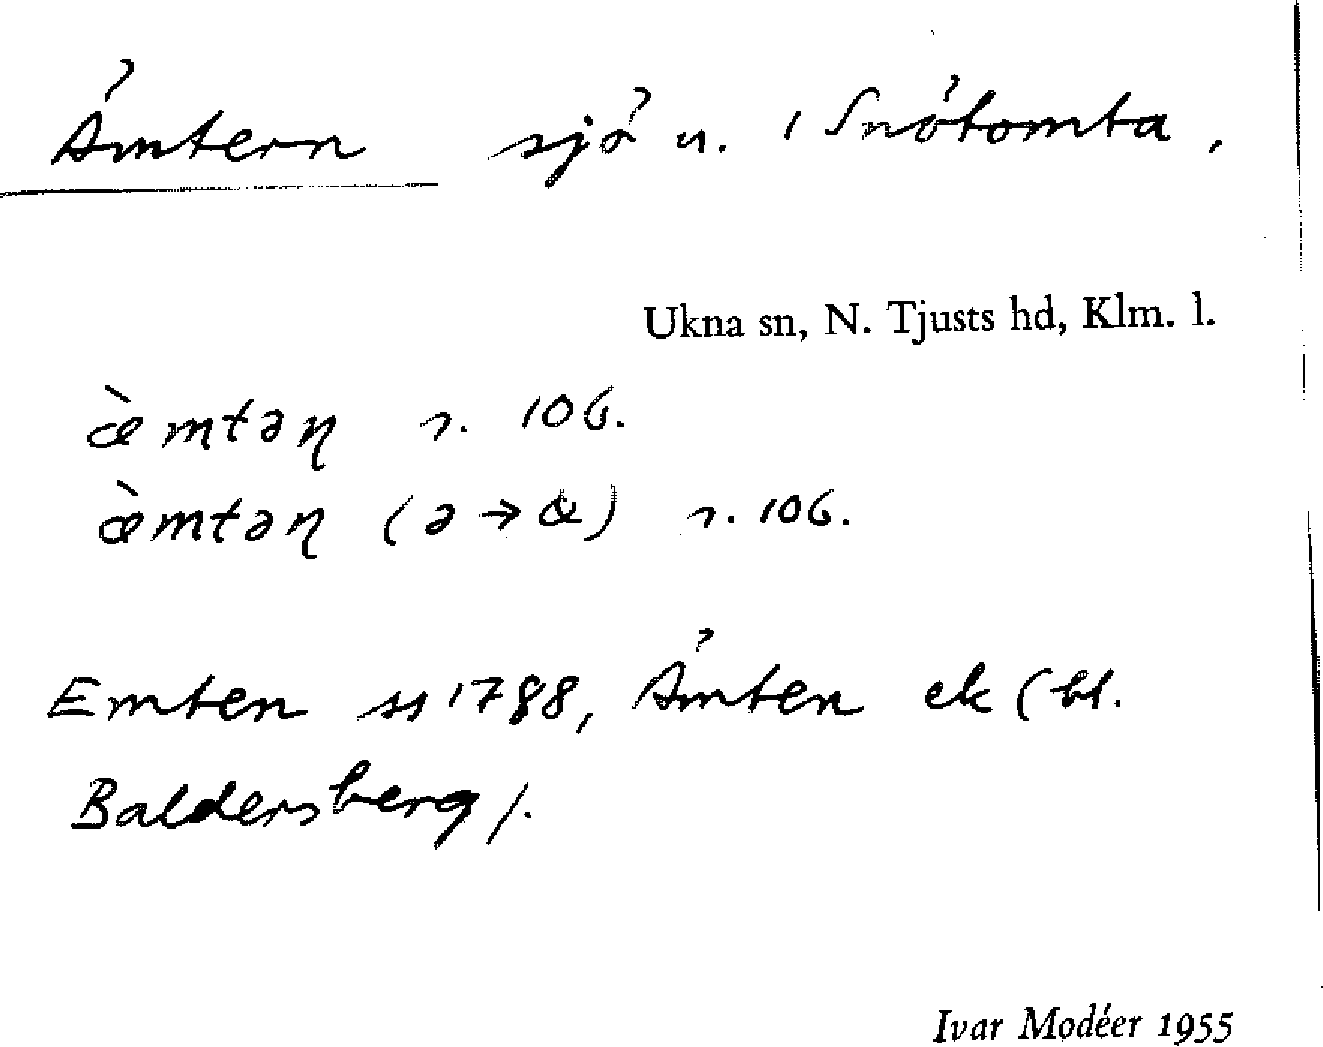 Ämtern sjö n. i Snötomta,
Ukna sn, N. Tjusts hd, Klm. l.
æ̀mtəɳ s. 106.
æ̀mtəɳ (ə → æ) s. 106.
Emten ss 1788, Ämten ek (bl.
Baldersberg).
Ivar Modéer 1955